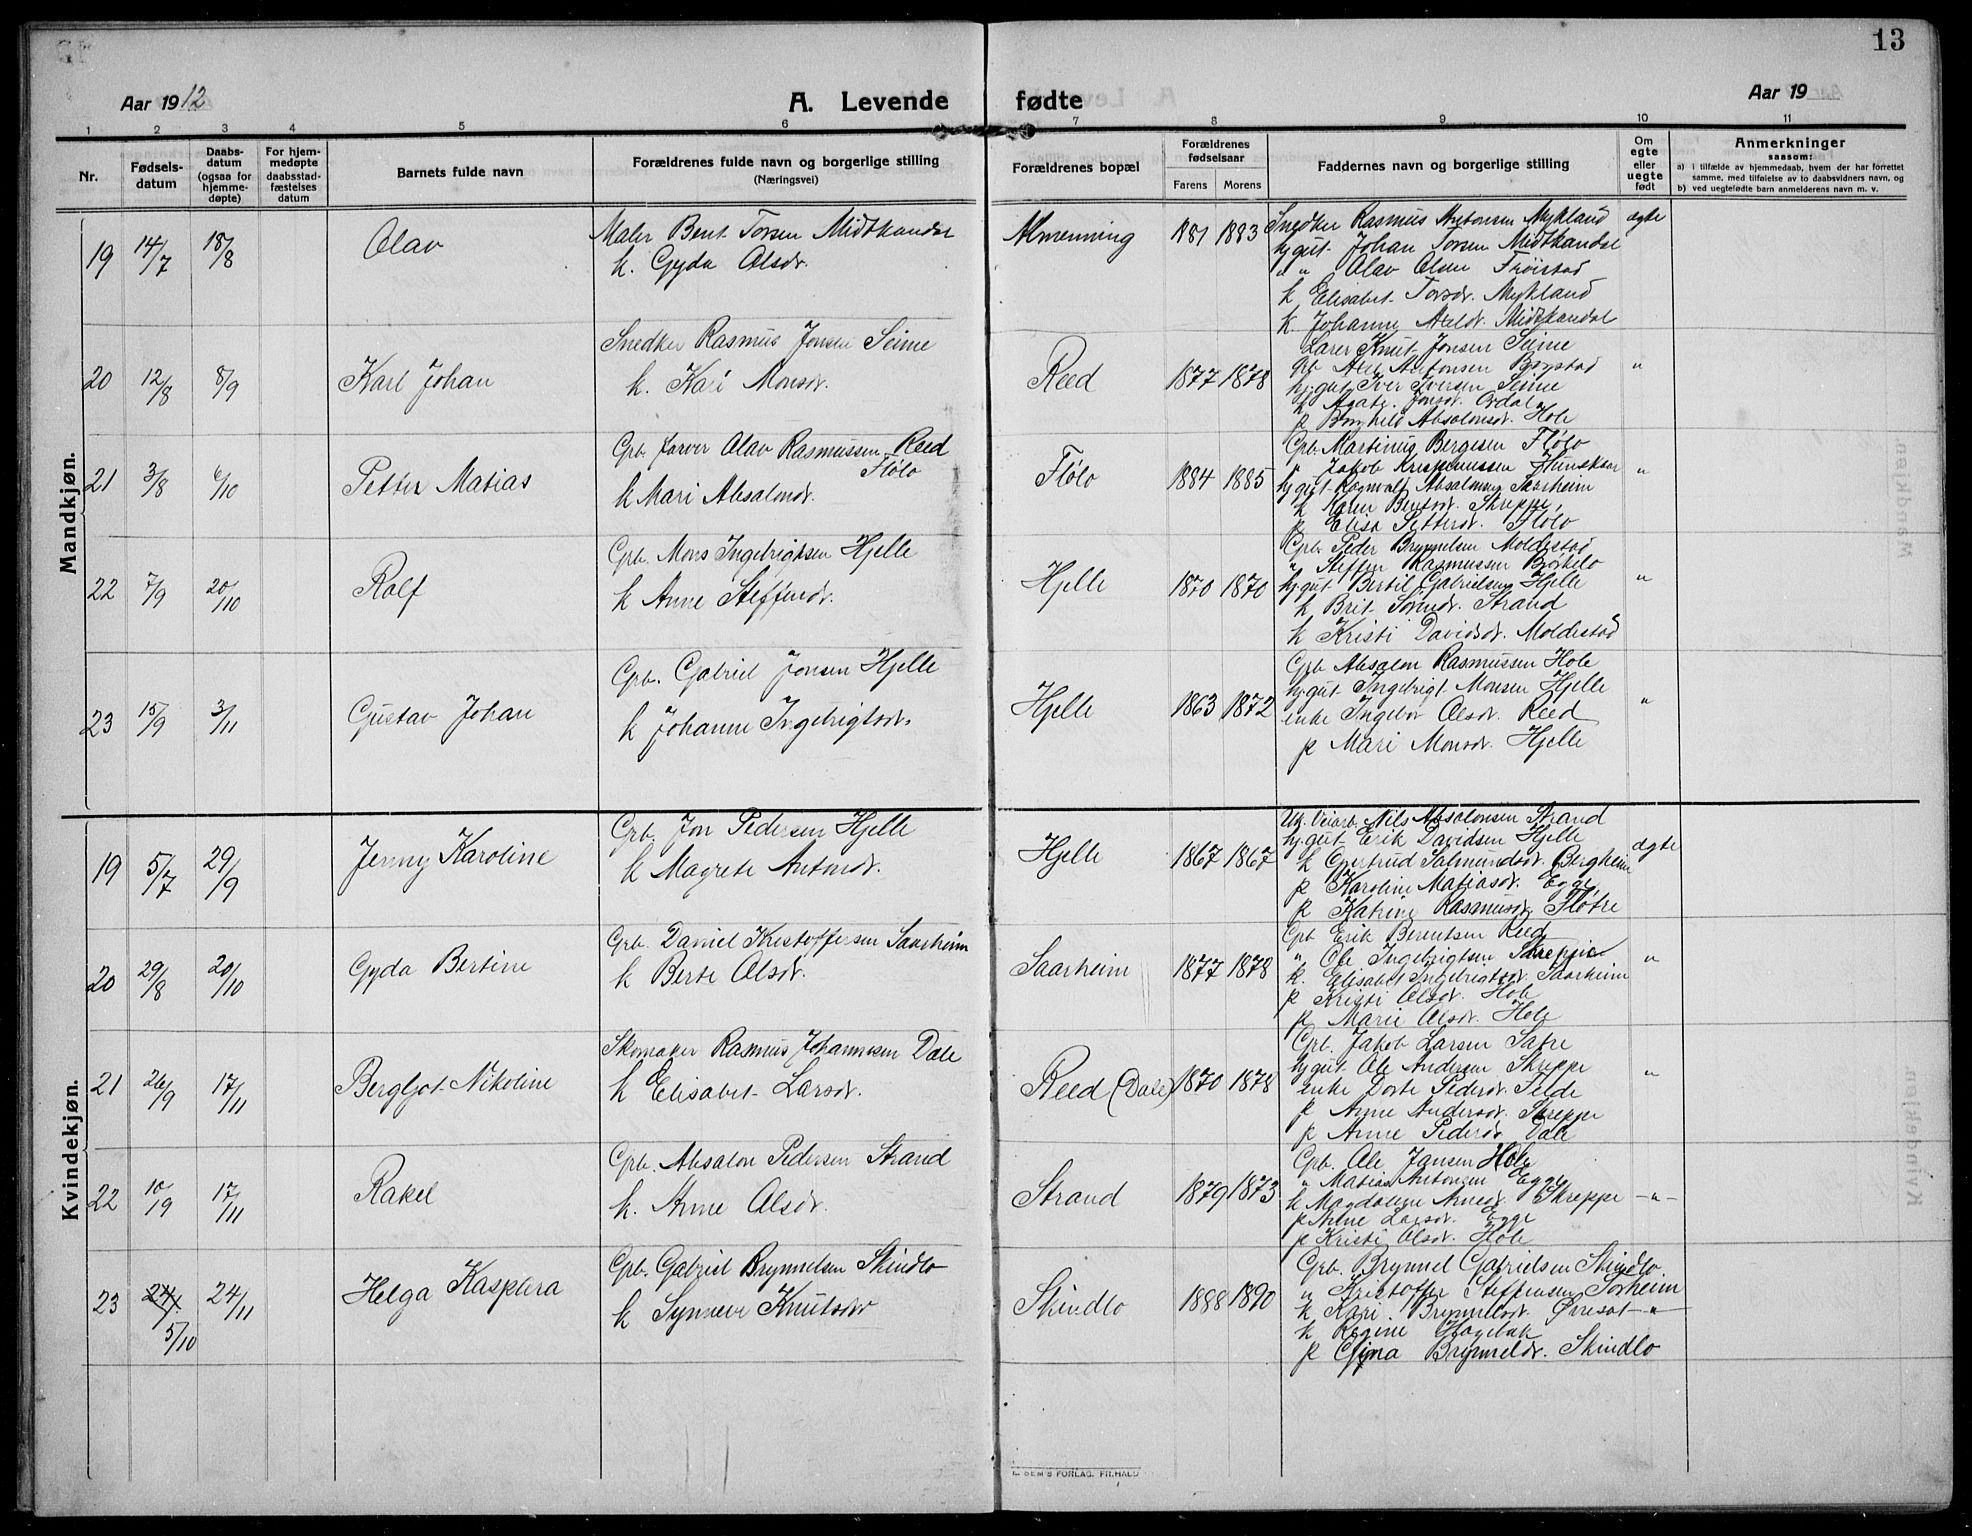 13
Aar 1912
A. Levende fødte
Aar 19
1 2 3 4 5 6 7 8 9 10 11
Nr.
Fødsels-
datum
Daabs-
datum
(ogsaa for
hjemme-
døpte)
For hjem-
medøpte
daabsstad-
fæstelses
datum
Barnets fulde navn
Forældrenes fulde navn og borgerlige stilling
(Næringsvei)
Forældrenes bopæl
Forældrenes
fødselsaar
Farens Morens
Faddernes navn og borgerlige stilling
Om
egte
eller
uegte
født
Anmerkninger
saasom:
a) i tilfælde av hjemmedaab, hvem der har forrettet
samme, med tilføielse av to daabsvidners navn, og
b) ved uegtefødte barn anmelderens navn m. v.
Mandkjøn.
19 14/7 18/8 Olav
Maler Bent Torsen Midtkandal
k. Gyda Olsdr.
Almenning 1881 1883
Snedker Rasmus Antonsen Mykland
hj.gut. Johan Torsen Midtkandal
" " Olav Olsen Frøistad
k Elisabet Torsdr. Mykland
k. Johanne Midtkandal
ægte
20 12/8 8/9 Karl Johan
Snedker Rasmus Jonsen Seime
k. Kari Monsdr.
Reed 1877 1878
Lærer Knut Jonsen Seime
Grb Antonsen
hj.gut Iver Iversen Seime
k Agate Jonsdr. Ordal
p Borghild Absalonsdr. Hole
"
21 3/8 6/10 Petter Matias
Grb. Farver Olav Rasmussen Reed
Flølo
k Mari Absalonsdr.
Flølo 1884 1885
Grb. Martinus Bergesen Flølo
" Jakob
hj.gut Ragnvald Absalonsen Saarheim
k Karen Bentsdr. Skreppe,
p Elisa Pettersdr. Flølo
"
22 7/9 20/10 Rolf
Grb. Mons Ingebrigtsen Hjelle
k Anne Steffensdr.
Hjelle 1870 1870
Grb. Peder Brynnelsen Moldestad
" Steffen Rasmussen Bjørkelo
hj.gut Bertil Gabrielsen Hjelle
k Brit Strand
k Kristi Davidsdr. Moldestad
"
23 15/9 3/11 Gustav Johan
Grb. Gabriel Jonsen Hjelle
k Johanne Ingebrigtsdr.
Hjelle 1863 1872
Grb Absalon Rasmussen Hole
hj.gut Ingebrigt Monsen Hjelle
enke Ingebor Olsdr. Reed
p Mari Monsdr. Hjelle
"
Kvindekjøn.
19 5/7 29/9 Jenny Karoline
Grb. Jon Pedersen Hjelle
k Magrete Antonsdr.
Hjelle 1867 1867
Veiarb. Nils Absalonsen Strand
hj.gut Erik Davidsen Hjelle
k Gjertrud Salmundsdr. Bergheim
p Karoline Matiasdr. Egge
p Katrine Rasmusdr. Fløtre
ægte
20 29/8 20/10 Gyda Bertine
Grb. Daniel Kristoffersen Saarheim
k Berte Olsdr.
Saarheim 1877 1878
Grb Erik Berentsen Reed
" Ole Ingebrigtsen Skreppe
k. Elisabet Ingebrigtsdr. Saarheim
p Kristi Olsdr. Hole
p Marie Olsdr. Hole
"
21 26/9 17/11 Bergljot Nikoline
Skomaker Rasmus Johannesen Dale
k Elisabet Larsdr.
Reed (Dale) 1870 1878
Grb. Jakob Larsen Sætre
hj.gut Ole Andersen Skreppe
enke Dorte Pedersdr. Felde
p Anne Andersdr. Skreppe
p Anne Pedersdr. Dale
"
22 10/9 17/11 Rakel
Grb. Absalon Pedersen Strand
k. Anne Olsdr.
Strand 1879 1873
Grb. Ole Jansen Hole
" Matias Antonsen Egge
k Magdalene Skreppe
p Larsdr. Egge
p Kristi Olsdr. Hole
- " -
23 24/ 24/11 Helga Kaspara
5/10
Grb. Gabriel Brynnelsen Skindlo
k Synneve Knutsdr
Skindlo 1888 1890
Grb. Brynnel Gabrielsen Skindlo
" Kristoffer Steffensen Sørheim
k Kari Brynnelsdr. Øvreset
k Regine Hagebak
p Gina Brynneldr. Skindlo
- " -
SEM'S FORLAG, FR.HALD